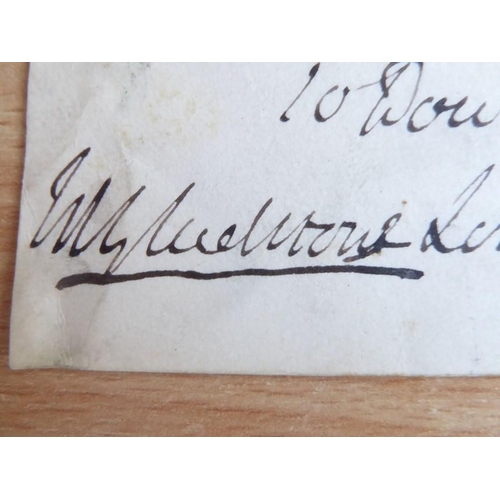 10 Dow
WEGladstone Lo